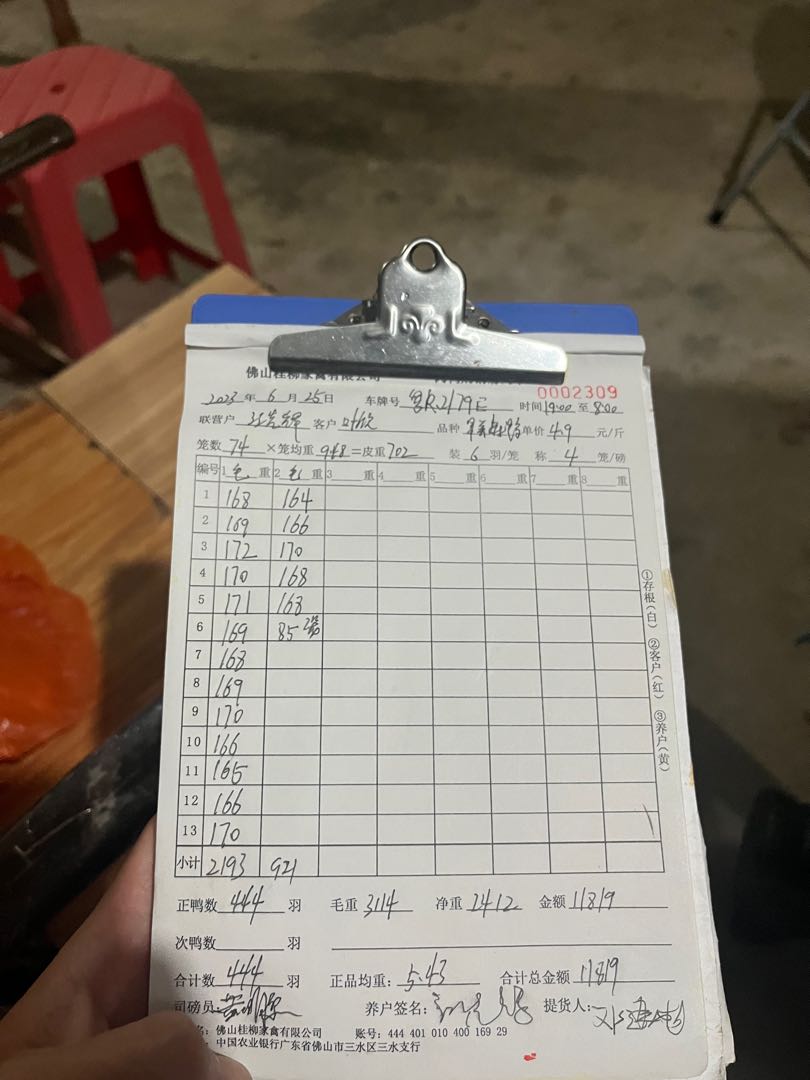 佛山桂柳家禽有限公司
0002309
2023年6月25日 车牌号 时间19:00至8:00
联营户 客户 品种 单价4.9元/斤
笼数74×笼均重948=皮重702 装6羽/笼 称4笼/磅
编号 1毛重 2毛重 3重 4重 5重 6重 7重 8重
1 168 164
2 169 166
3 172 170
4 170 168
5 171 168
6 169 85
7 168
8 169
9 170
10 166
11 165
12 166
13 170
小计 2193 921
正鸭数444羽 毛重3114 净重2412 金额11819
次鸭数羽
合计数444羽 正品均重:5.43 合计总金额11819
司磅员: 养户签名: 提货人:
名:佛山桂柳家禽有限公司 账号:444 401 010 400 169 29
:中国农业银行广东省佛山市三水区三水支行
①存根(白) ②客户(红) ③养户(黄)